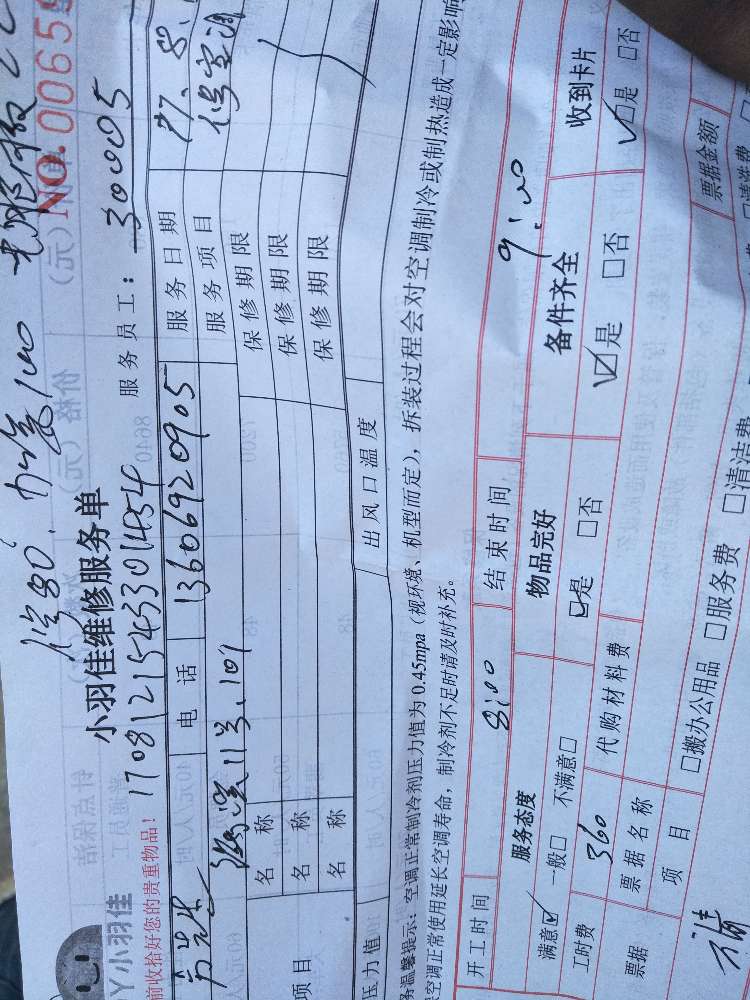 修80. 加氟100
NO.00659
小羽佳维修服务单
Y小羽佳
170812154330 1454 服务员工：30005
前收拾好您的贵重物品！
电话 13606920905 服务日期 17.8.
11号.101 服务项目 修空调
名称 保修期限
名称 保修期限
项目 名称 保修期限
压力值 出风口温度
务温馨提示：空调正常制冷剂压力值为 0.45mpa（视环境、机型而定），拆装过程会对空调制冷或制热造成一定影响
空调正常使用延长空调寿命，制冷剂不足时请及时补充。
开工时间 8:00 结束时间 9:00
服务态度 物品完好 备件齐全 收到卡片
满意☑ 一般□ 不满意□ ☑是 □否 ☑是 □否 ☑是 □否
工时费 360 代购材料费
票据 票据名称 票据金额
项目 □搬办公用品 □服务费 □清洁费 □清洗费